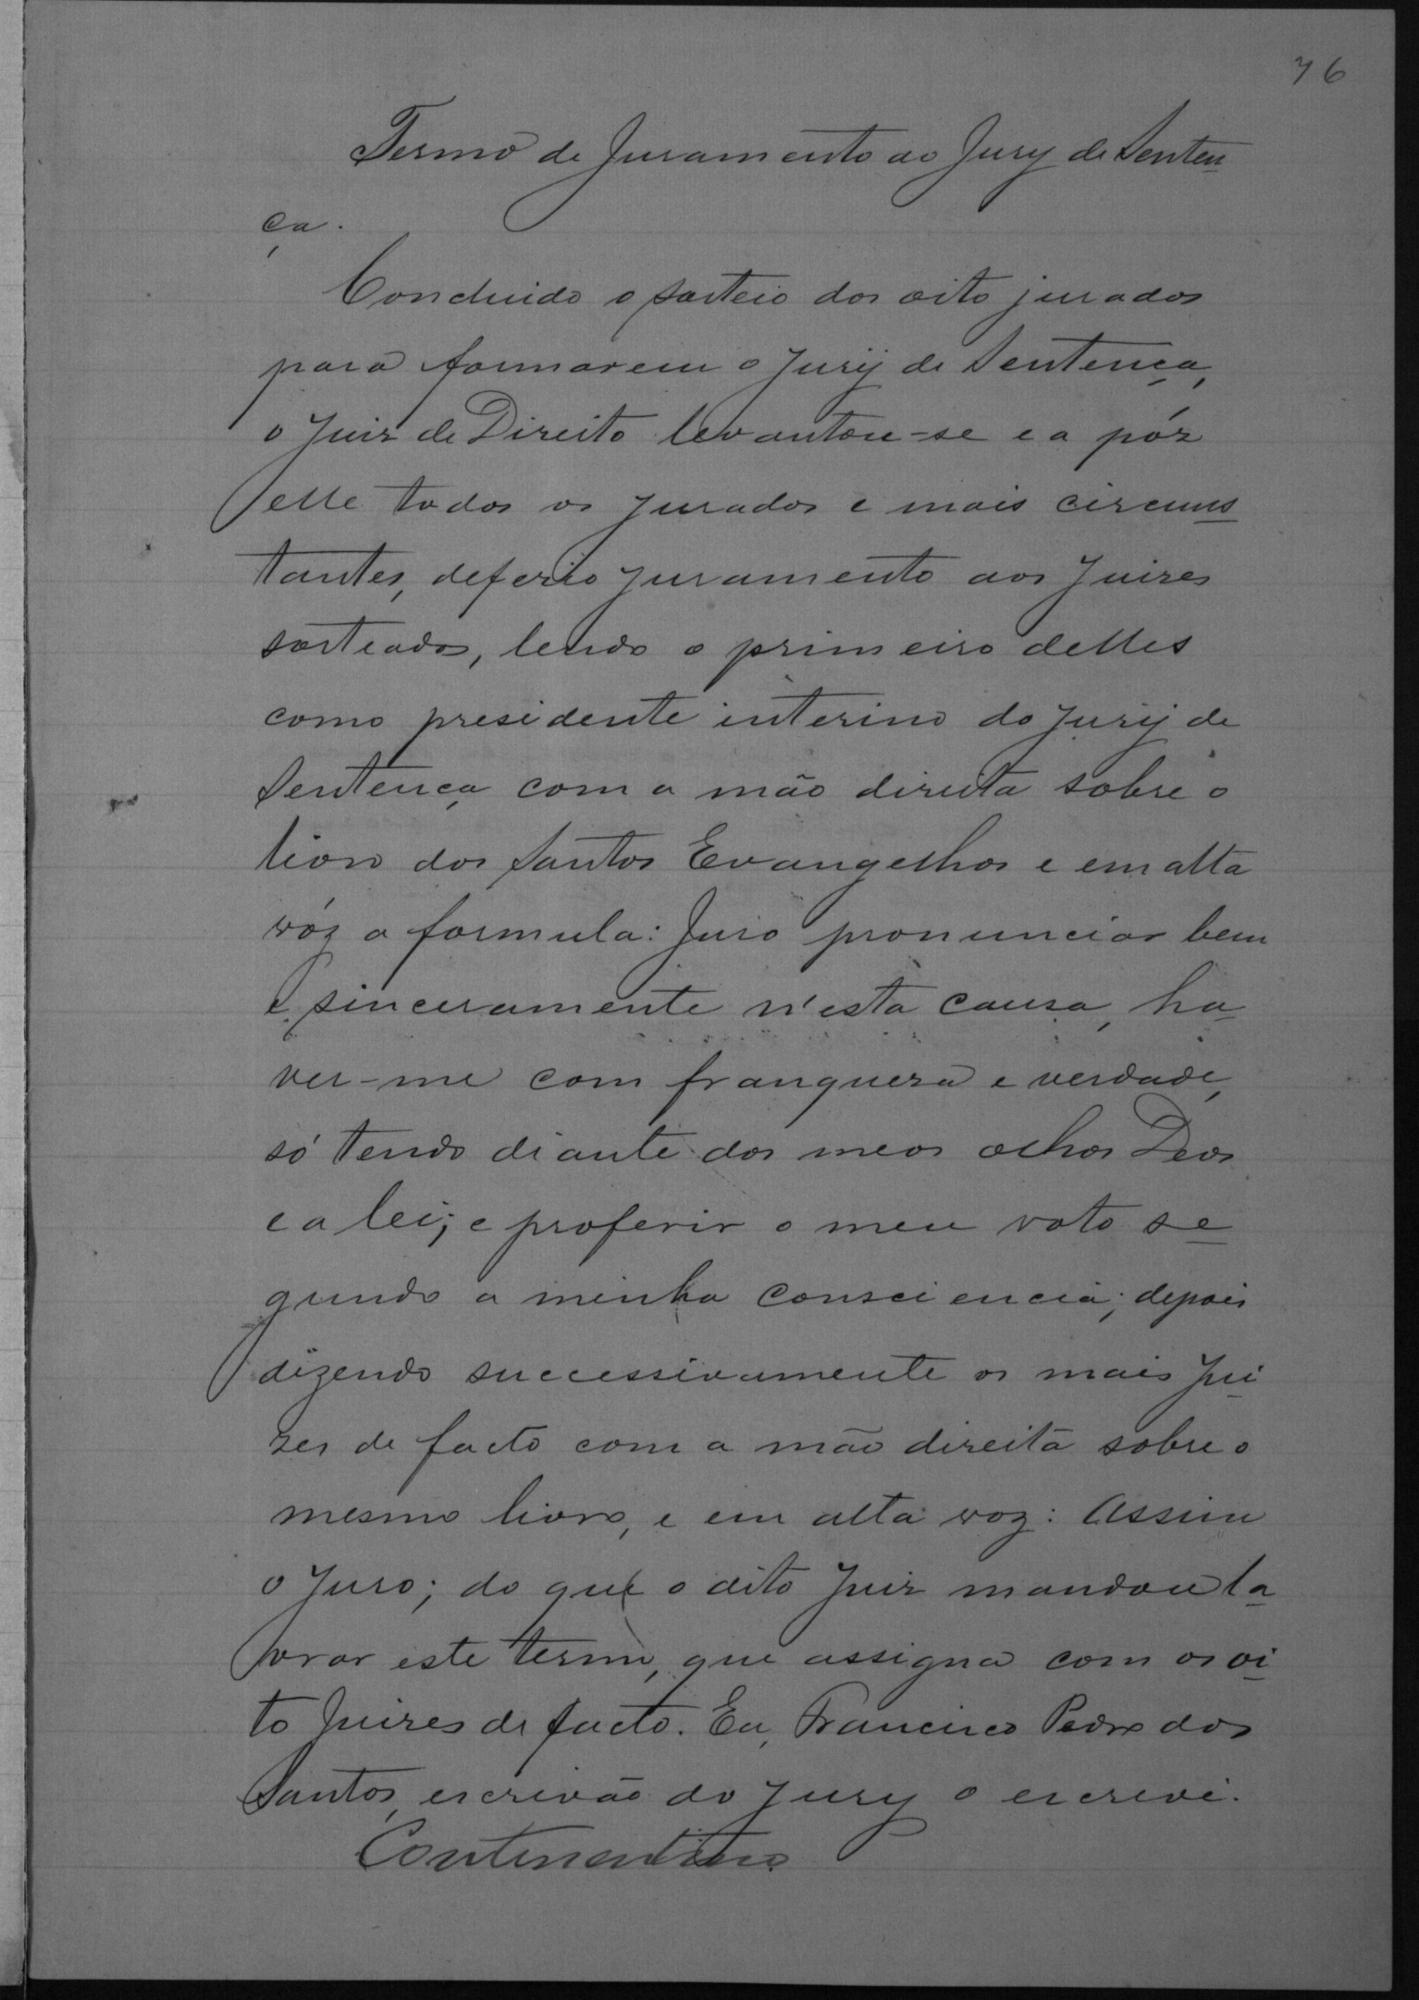 76
Termo de Juramento ao Jury de Senten
ça.
Concluido o sorteio dos oito jurados
para formarem o Jury de Sentença,
o Juiz de Direito levantou-se e a póz
elle todos os jurados e mais circums
tantes, deferio juramento aos Juizes
sorteados, lendo o primeiro delles
como presidente interino do Jury de
Sentença com a mão direita sobre o
livro dos Santos Evangelhos e em alta
vóz a formula: Juro pronunciar bem
e sinceramente n'esta causa, ha-
ver-me com franqueza e verdade,
só tendo diante dos meos olhos Deos
e a lei; e proferir o meu voto se
gundo a minha consciencia; depois
dizendo successivamente os mais Jui
zes de facto com a mão direita sobre o
mesmo livro, e em alta voz: Assim
o Juro; do que o dito Juiz mandou la
vrar este termo, que assigna com os oi
to Juizes de facto. Eu, Francisco Pedro dos
Santos, escrivão do Jury o escrevi.
Continentino